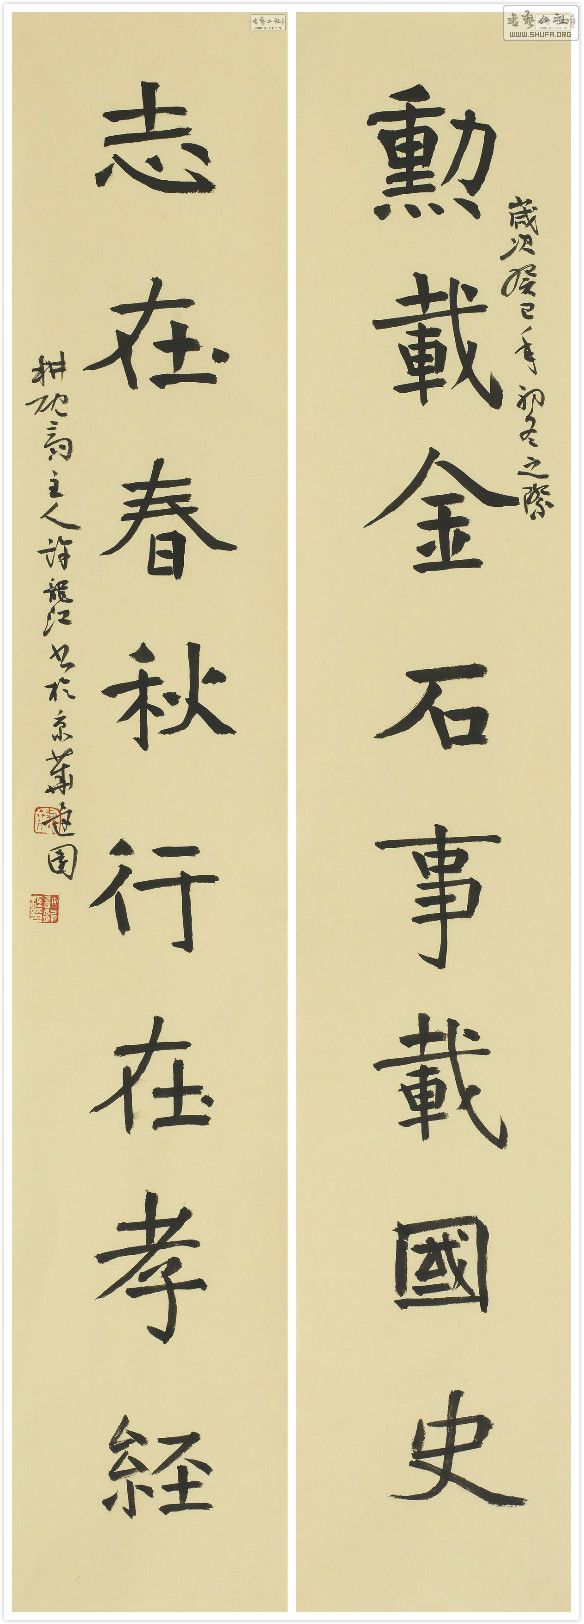 勲載金石事載國史
歲次癸巳年初冬之際
志在春秋行在孝経
耕砚斋主人許龍江书於京華遊園
书艺公社
WWW.SHUFA.ORG